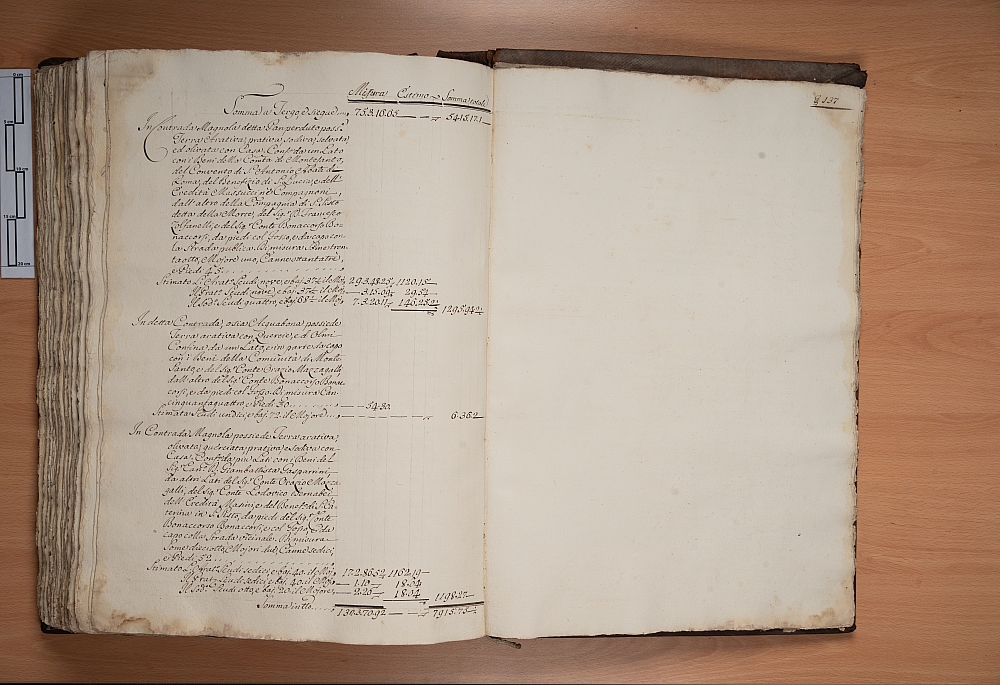 Misura Estimo Somma totale
Somma a Tergo e siegue 753.18.65 5415.17.1
In Contrada Magnola detta Panperduto poss.e
Terra arativa, prativa, sodiva, selvata,
ed olivata con Casa. Conf. da un Lato
con i Beni della Com.tà di Montesanto,
del Convento di S. Antonio Abbate di
Roma, del Benefizio di S. Lucia, e dell'
Eredità Massucci, e Compagnoni
dall'altro della Compagnia di S. Sisto
detta della Morte, del Sig.r D. Francesco
Zoffanelli, e del Sig.r Conte Bonaccorso Bo=
naccorsi, da piedi col Fosso, e da capo con
la Strada publica. Di misura
taotto, Mojore uno, Canne ottantatre,
e Piedi 45
Stimato L'Arat.o Scudi nove, e baj. 37½ il Mo.
Il Prat.o Scudi nove, e baj. 37½ il Mo.
Il Sod.o Scudi quattro, e baj. 68½ il Mo.
In detta Contrada, osia Acquabona possiede
Terra arativa con Quercie, ed Olmi
Confina da un Lato, e in parte da capo
con i Beni della Comunità di Monte
Santo, e del Sig.r Conte Orazio Mazzagalli
dall'altro del Sig.r Conte Bonaccorso Bonac
corsi, e da piedi col Fosso. Di misura Can.
cinquantaquattro, e Piedi 30 54.30
Stimata Scudi undici, e baj. 72 il Mojore 6.36.2
In Contrada Magnola possiede Terra arativa,
olivata, querciata, prativa, e sodiva con
Casa. Conf. da più Lati con i Beni del
Sig.r Can.co D. Giambattista Gasparrini,
da altri Lati del Sig.r Conte Orazio Mazza
galli, del Sig.r Conte Lodovico Bernabei
dell'Eredità Masini, e del Benef. di S. Ca
terina in S. Sisto, da piedi del Sig.r Conte
Bonaccorso Bonaccorsi, e col Fosso, e da
capo colla Strada vicinale. Di misura
Some dieciotto, Mojori due, Canne sedici,
e Piedi 52
Stimato L'Arat.o Scudi sedici, e baj. 40 il Mo. 172.86.52 1162.19
Il Prat.o Scudi sedici, e baj. 40 il Mo. 1.10 18.04
Il Sod.o Scudi otto, e baj. 20 il Mojore 2.20 18.04 1198.27
Somma in tto 1303.70.92 7915.75
137